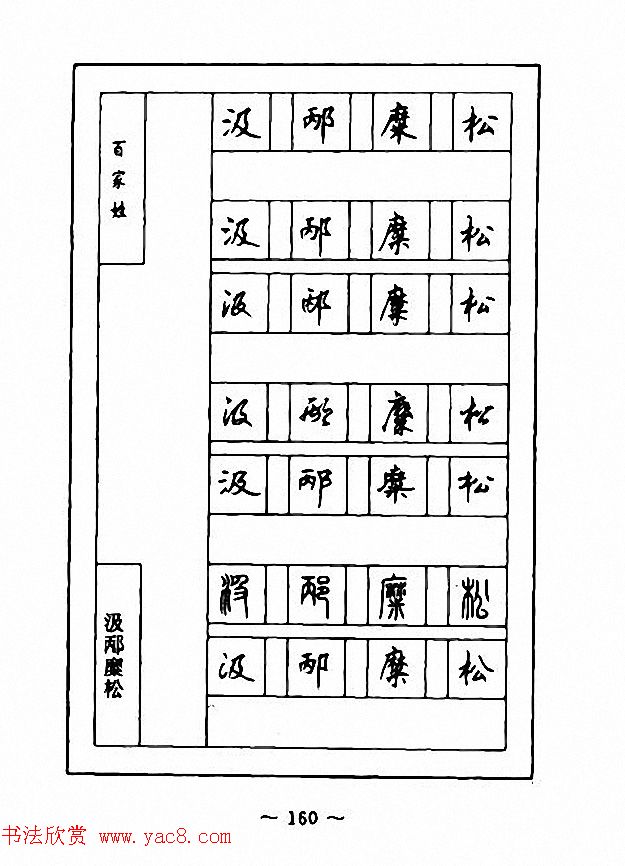 百家姓
汲 邴 糜 松
汲 邴 糜 松
汲 邴 糜 松
汲 邴 糜 松
汲 邴 糜 松
汲 邴 糜 松
汲 邴 糜 松
汲邴糜松
~ 160 ~
书法欣赏 www.yac8.com